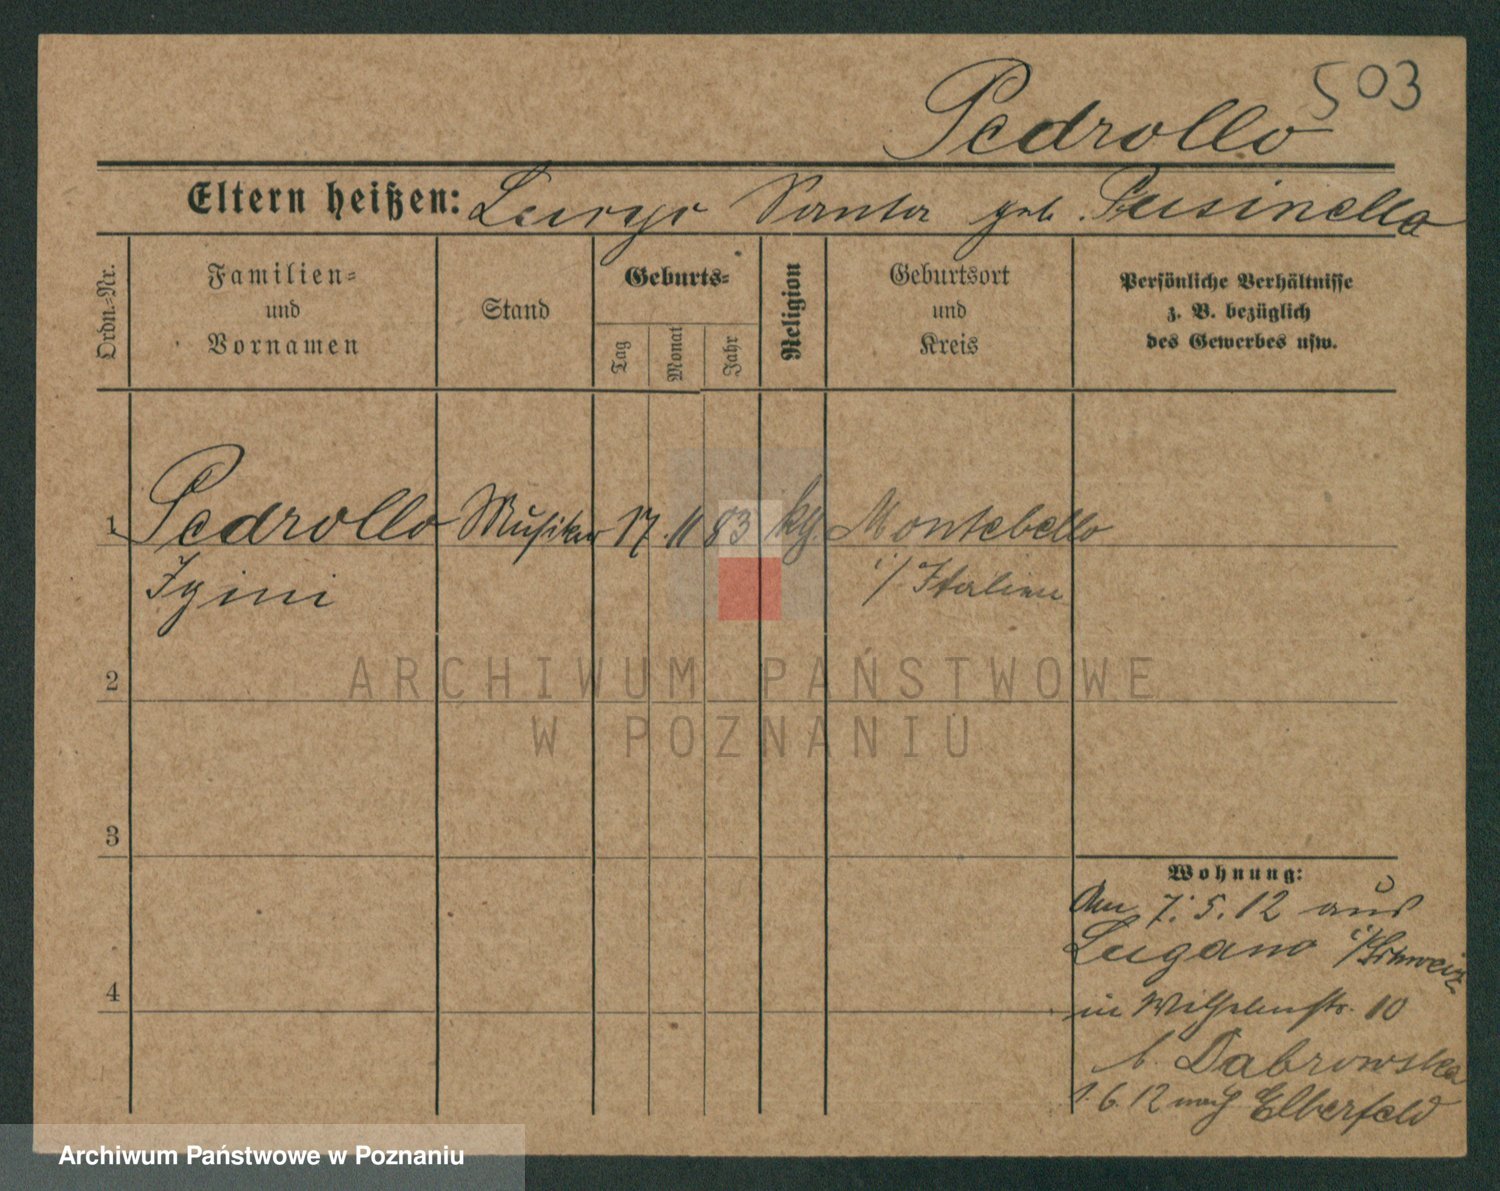 503
Pedrollo
Eltern heißen: Luigi Santa geb. Pusinella
Ordn.-Nr.
Familien-
und
Vornamen
Stand
Geburts-
Tag
Monat
Jahr
Religion
Geburtsort
und
Kreis
Persönliche Verhältnisse
z. B. bezüglich
des Gewerbes usw.
1 Pedrollo Musiker 17. 11 83 kg. Montebello
Igini i/ Italien
2
3
4
Wohnung:
Am 7. 5. 12 aus
Lugano i/Schweiz
in Wilhelmstr. 10
b. Dabrowska
1. 6. 12 nach Elberfeld
ARCHIWUM PAŃSTWOWE
W POZNANIU
Archiwum Państwowe w Poznaniu